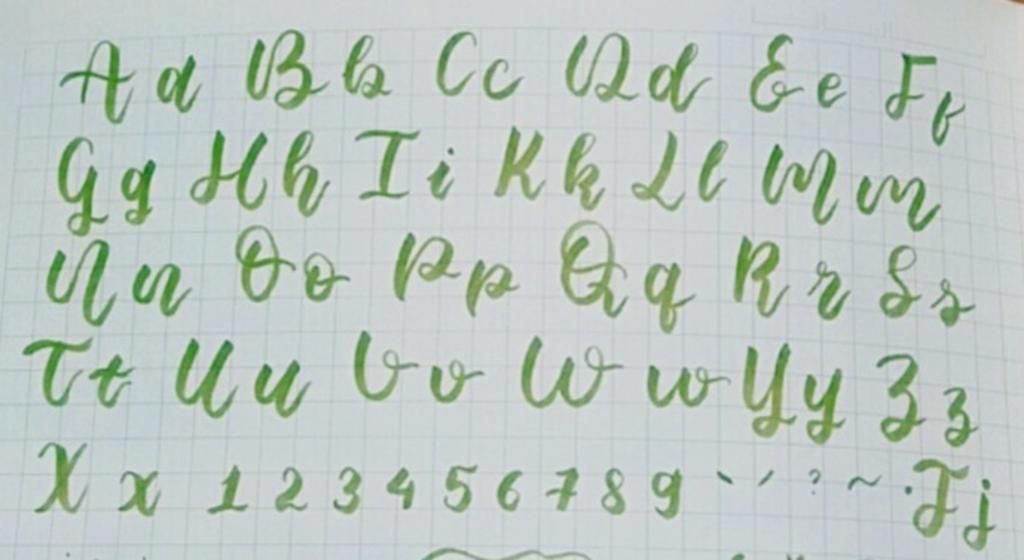 A a B b C c D d E e F f
G g H h I i K k L l M m
N n O o P p Q q R r S s
T t U u V v W w Y y Z z
X x 1 2 3 4 5 6 7 8 9 ` ´ ? ~ . J j